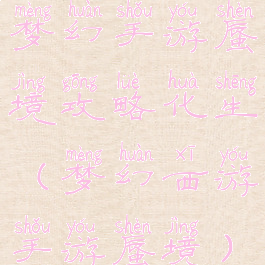 mèng huàn shǒu yóu shèn
梦幻手游蜃
jìng gōng lüè huà shēng
境攻略化生
mèng huàn xī yóu
（梦幻西游
shǒu yóu shèn jìng
手游蜃境）